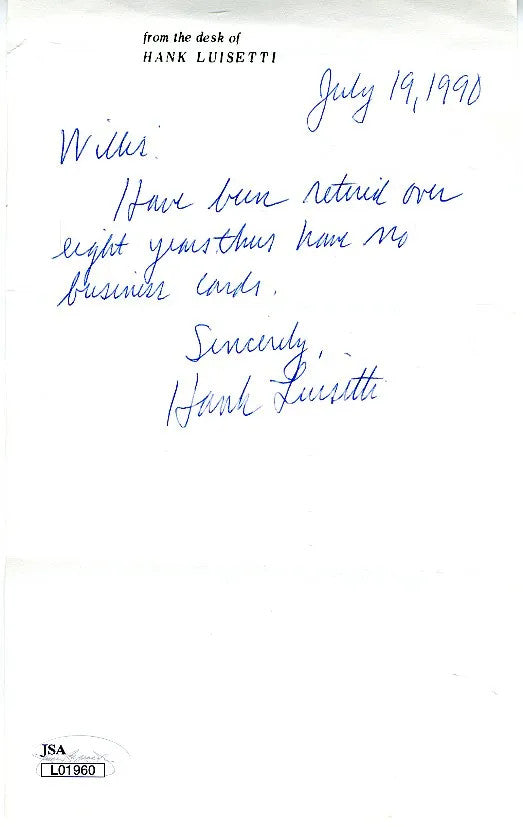 from the desk of
HANK LUISETTI
July 19, 1990
Willis:
Have been retired over
eight years thus have no
business cards.
Sincerely,
Hank Luisetti
JSA
L01960